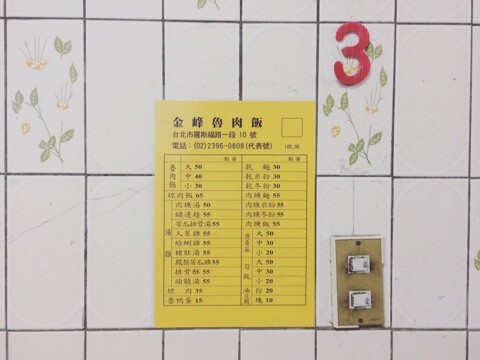 3
金峰魯肉飯
台北市羅斯福路一段 10 號
電話：(02)2396-0808(代表號)
數量
魯肉飯
大 50
中 40
小 30
焢肉飯 65
湯類
肉焿湯 50
邊銼 55
苦瓜排骨湯 55
人蔘雞 55
蛤蜊雞 55
豬肚湯 55
鳳梨苦瓜雞 55
排骨酥 55
頭髓湯 55
焢肉 35
魯鴨蛋 15
數量
乾麵 30
乾米粉 30
乾冬粉 30
肉焿麵 55
肉焿米粉 55
肉焿冬粉 55
肉焿飯 55
燙青菜
大 50
中 30
小 20
大 50
中 30
小 20
油豆腐
份 20
塊 10